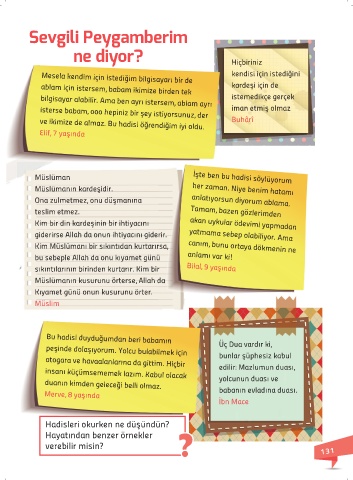 Sevgili Peygamberim
ne diyor?
Mesela kendim için istediğim bilgisayarı bir de
ablam için istersem, babam ikimize birden tek
bilgisayar alabilir. Ama ben ayrı istersem, ablam ayrı
isterse babam, ooo hepiniz bir şey istiyorsunuz, der
ve ikimize de almaz. Bu hadisi öğrendiğim iyi oldu.
Elif, 7 yaşında
Hiçbiriniz
kendisi için istediğini
kardeşi için de
istemedikçe gerçek
iman etmiş olmaz
Buhârî
Müslüman
Müslümanın kardeşidir.
Ona zulmetmez, onu düşmanına
teslim etmez.
Kim bir din kardeşinin bir ihtiyacını
giderirse Allah da onun ihtiyacını giderir.
Kim Müslümanı bir sıkıntıdan kurtarırsa,
bu sebeple Allah da onu kıyamet günü
sıkıntılarının birinden kurtarır. Kim bir
Müslümanın kusurunu örterse, Allah da
Kıyamet günü onun kusurunu örter.
Müslim
İşte ben bu hadisi söylüyorum
her zaman. Niye benim hatamı
anlatıyorsun diyorum ablama.
Tamam, bazen gözlerimden
akan uykular ödevimi yapmadan
yatmama sebep olabiliyor. Ama
canım, bunu ortaya dökmenin ne
anlamı var ki!
Bilal, 9 yaşında
Bu hadisi duyduğumdan beri babamın
peşinde dolaşıyorum. Yolcu bulabilmek için
otogara ve havaalanlarına da gittim. Hiçbir
insanı küçümsememek lazım. Kabul olacak
duanın kimden geleceği belli olmaz.
Merve, 8 yaşında
Üç Dua vardır ki,
bunlar şüphesiz kabul
edilir. Mazlumun duası,
yolcunun duası ve
babanın evladına duası.
İbn Mace
Hadisleri okurken ne düşündün?
Hayatından benzer örnekler
verebilir misin?
?
131